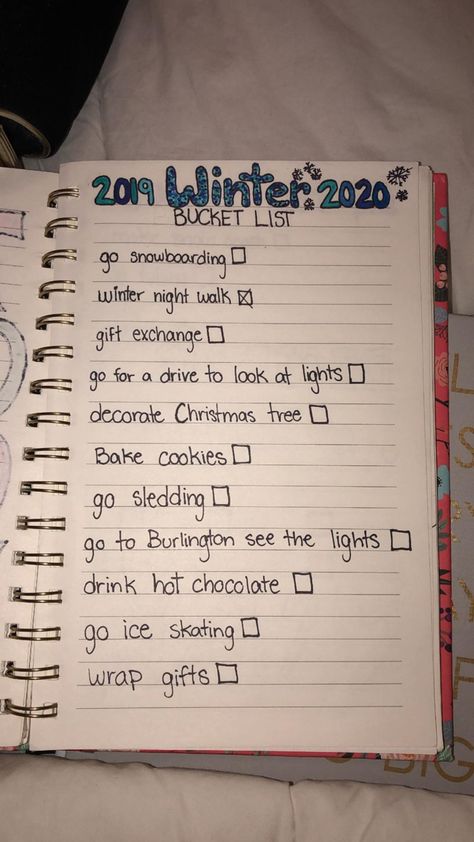 2019 Winter 2020
BUCKET LIST
go snowboarding ☐
winter night walk ☒
gift exchange ☐
go for a drive to look at lights ☐
decorate Christmas tree ☐
Bake cookies ☐
go sledding ☐
go to Burlington see the lights ☐
drink hot chocolate ☐
go ice skating ☐
wrap gifts ☐
BIG